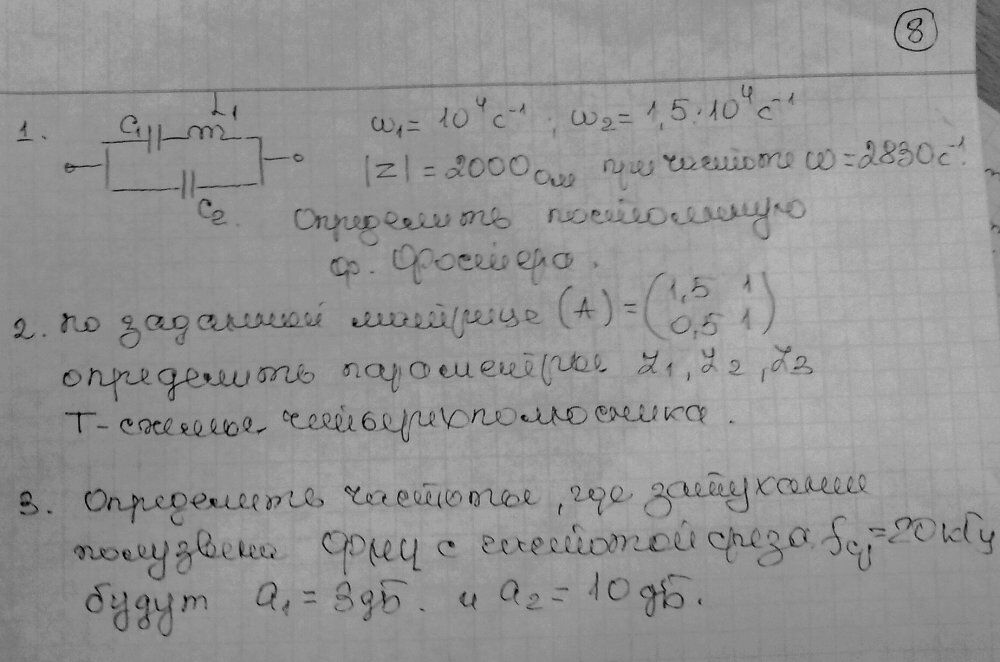 8
1. C₁ L₁ ω₁ = 10⁴ с⁻¹; ω₂ = 1,5·10⁴ с⁻¹
|Z| = 2000 Ом при частоте ω = 2830 с⁻¹.
C₂. Определить постоянную
ф. Фостера.
2. По заданной матрице (A) = (1,5 1
0,5 1)
определить параметры Z₁, Z₂, Z₃
Т-схемы четырехполюсника.
3. Определить частоты, где затухание
полузвена ФНЧ с частотой среза f = 20 кГц
будут a₁ = 3 дБ. и a₂ = 10 дБ.